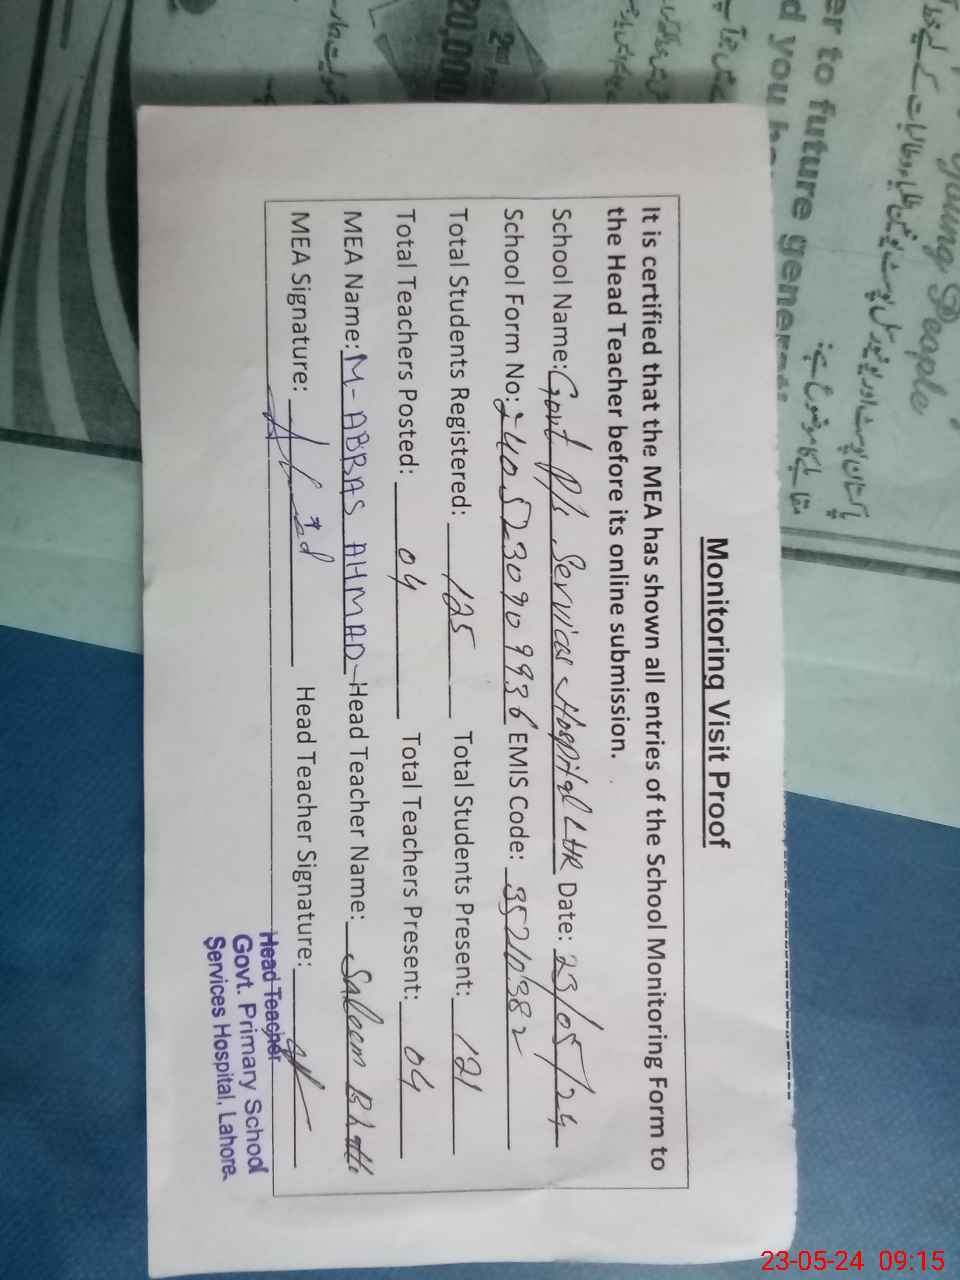 Monitoring Visit Proof
It is certified that the MEA has shown all entries of the School Monitoring Form to
the Head Teacher before its online submission.
School Name: Govt P/S Services Hospital LHR Date: 23/05/24
School Form No: 2405230909936 EMIS Code: 35210382
Total Students Registered: 125 Total Students Present: 121
Total Teachers Posted: 04 Total Teachers Present: 04
MEA Name: M-ABBAS AHMAD Head Teacher Name: Saleem Bhatti
MEA Signature: Head Teacher Signature:
Head Teacher
Govt. Primary School
Services Hospital, Lahore.
er to future
d you
Young People
20,000
23-05-24 09:15